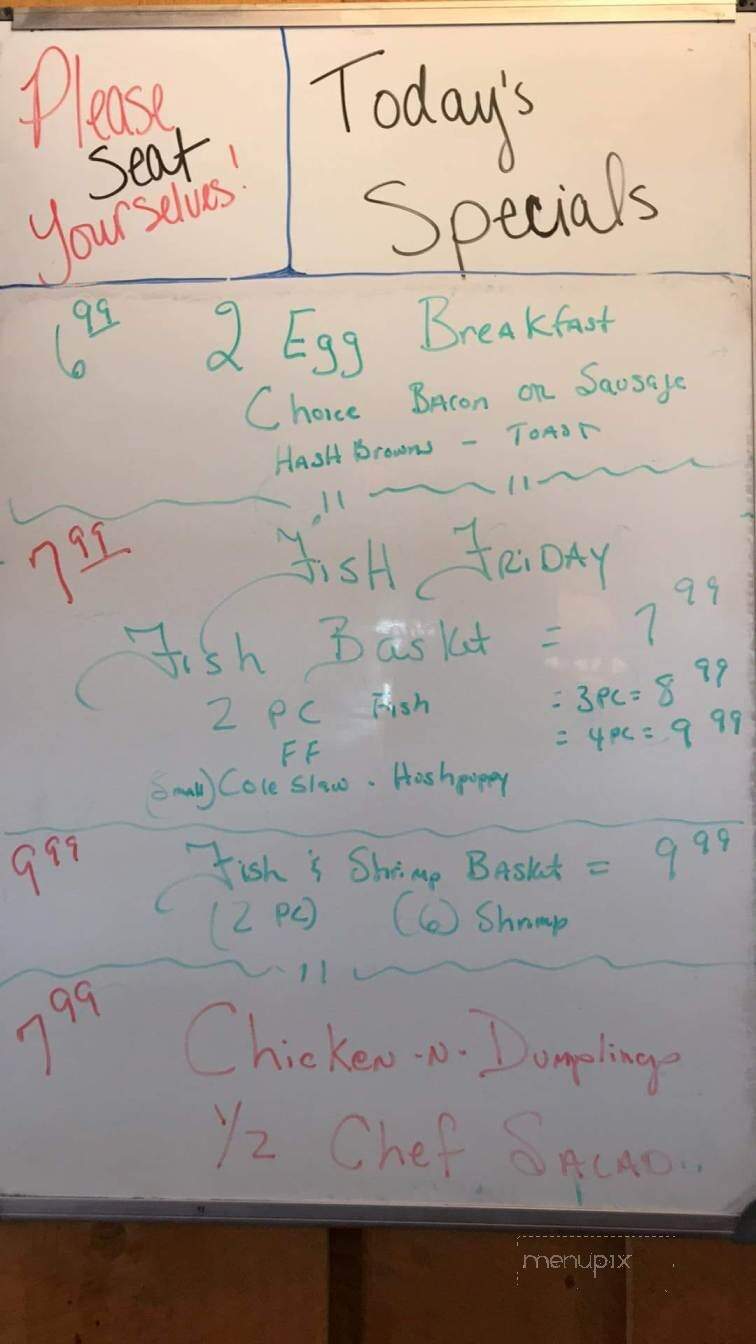 Please
Seat
Yourselves!
Today's
Specials
6 99 2 Egg Breakfast
Choice Bacon or Sausage
Hash Browns - Toast
7 99 Fish Friday
Fish Basket = 7 99
2 PC Fish = 3 PC = 8 99
FF = 4 PC = 9 99
(Small) Cole Slaw - Hushpuppy
9 99 Fish & Shrimp Basket = 9 99
(2 PC) (6) Shrimp
7 99 Chicken -N- Dumplings
1/2 Chef Salad..
menupix